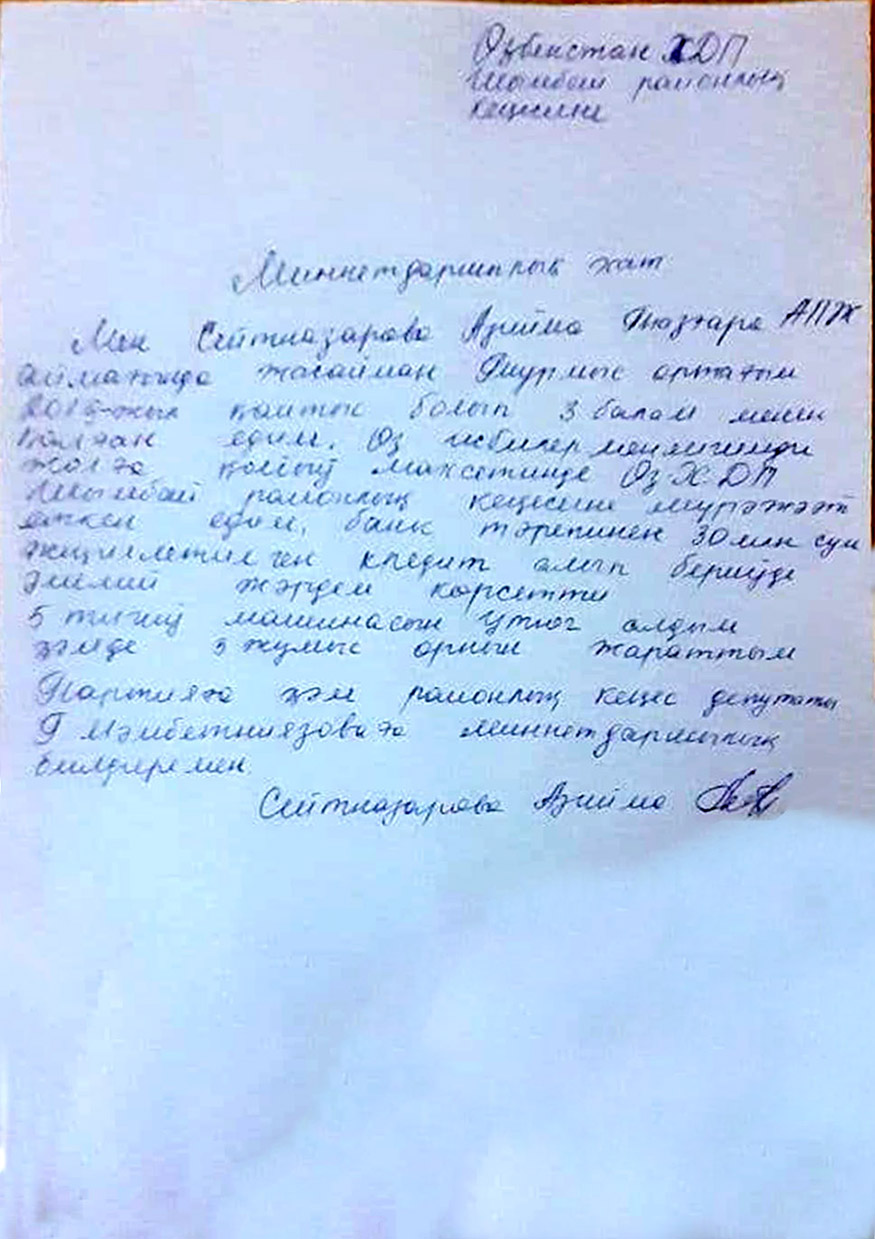 Өзбекстан ХДП
Шымбай районлық
кеңесине
Миннетдаршылық хат
Мен Сейтназарова Азийма Тазгара АПЖ
аймағында жасайман Турмыс ортағым
2015-жыл қайтыс болып 3 балам менен
қалған едим. Өз исбилерменлигимди
жолға қойыў мақсетинде ӨзХДП
Шымбай районлық кеңесине мүрәжәәт
еткен едим, банк тәрепинен 30 млн сум
жеңиллетилген кредит алып бериўде
әмелий жәрдем көрсетти
5 тигиў машинасын утюг алдым
ҳәмде 3 жумыс орнын жараттым
Партияға ҳәм районлық кеңес депутаты
Г Мәмбетниязоваға миннетдаршылық
билдиремен
Сейтназарова Азийма